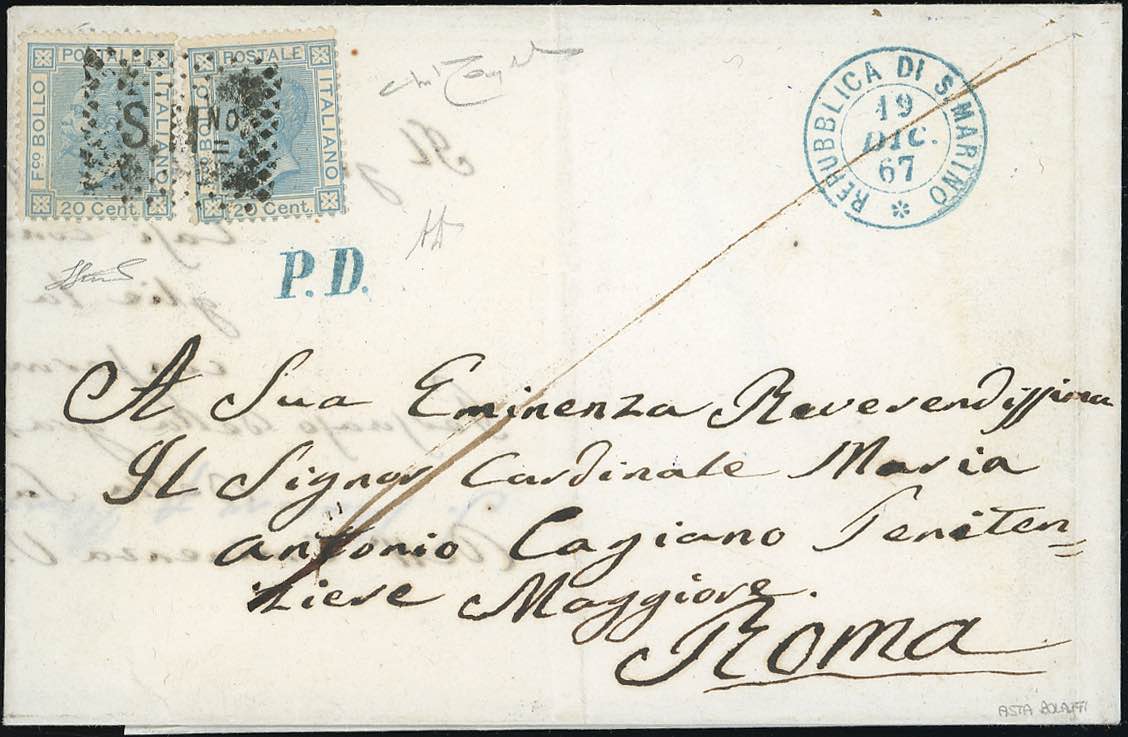 POSTALE
Fco BOLLO
ITALIANO
20 Cent.
POSTALE
Fco BOLLO
ITALIANO
20 Cent.
S. INO
REPUBBLICA DI S. MARINO
19
DIC.
67
P. D.
A Sua Eminenza Reverendissima
Il Signor Cardinale Maria
Antonio Cagiano Peniten=
ziere Maggiore.
Roma
ASTA BOLAFFI